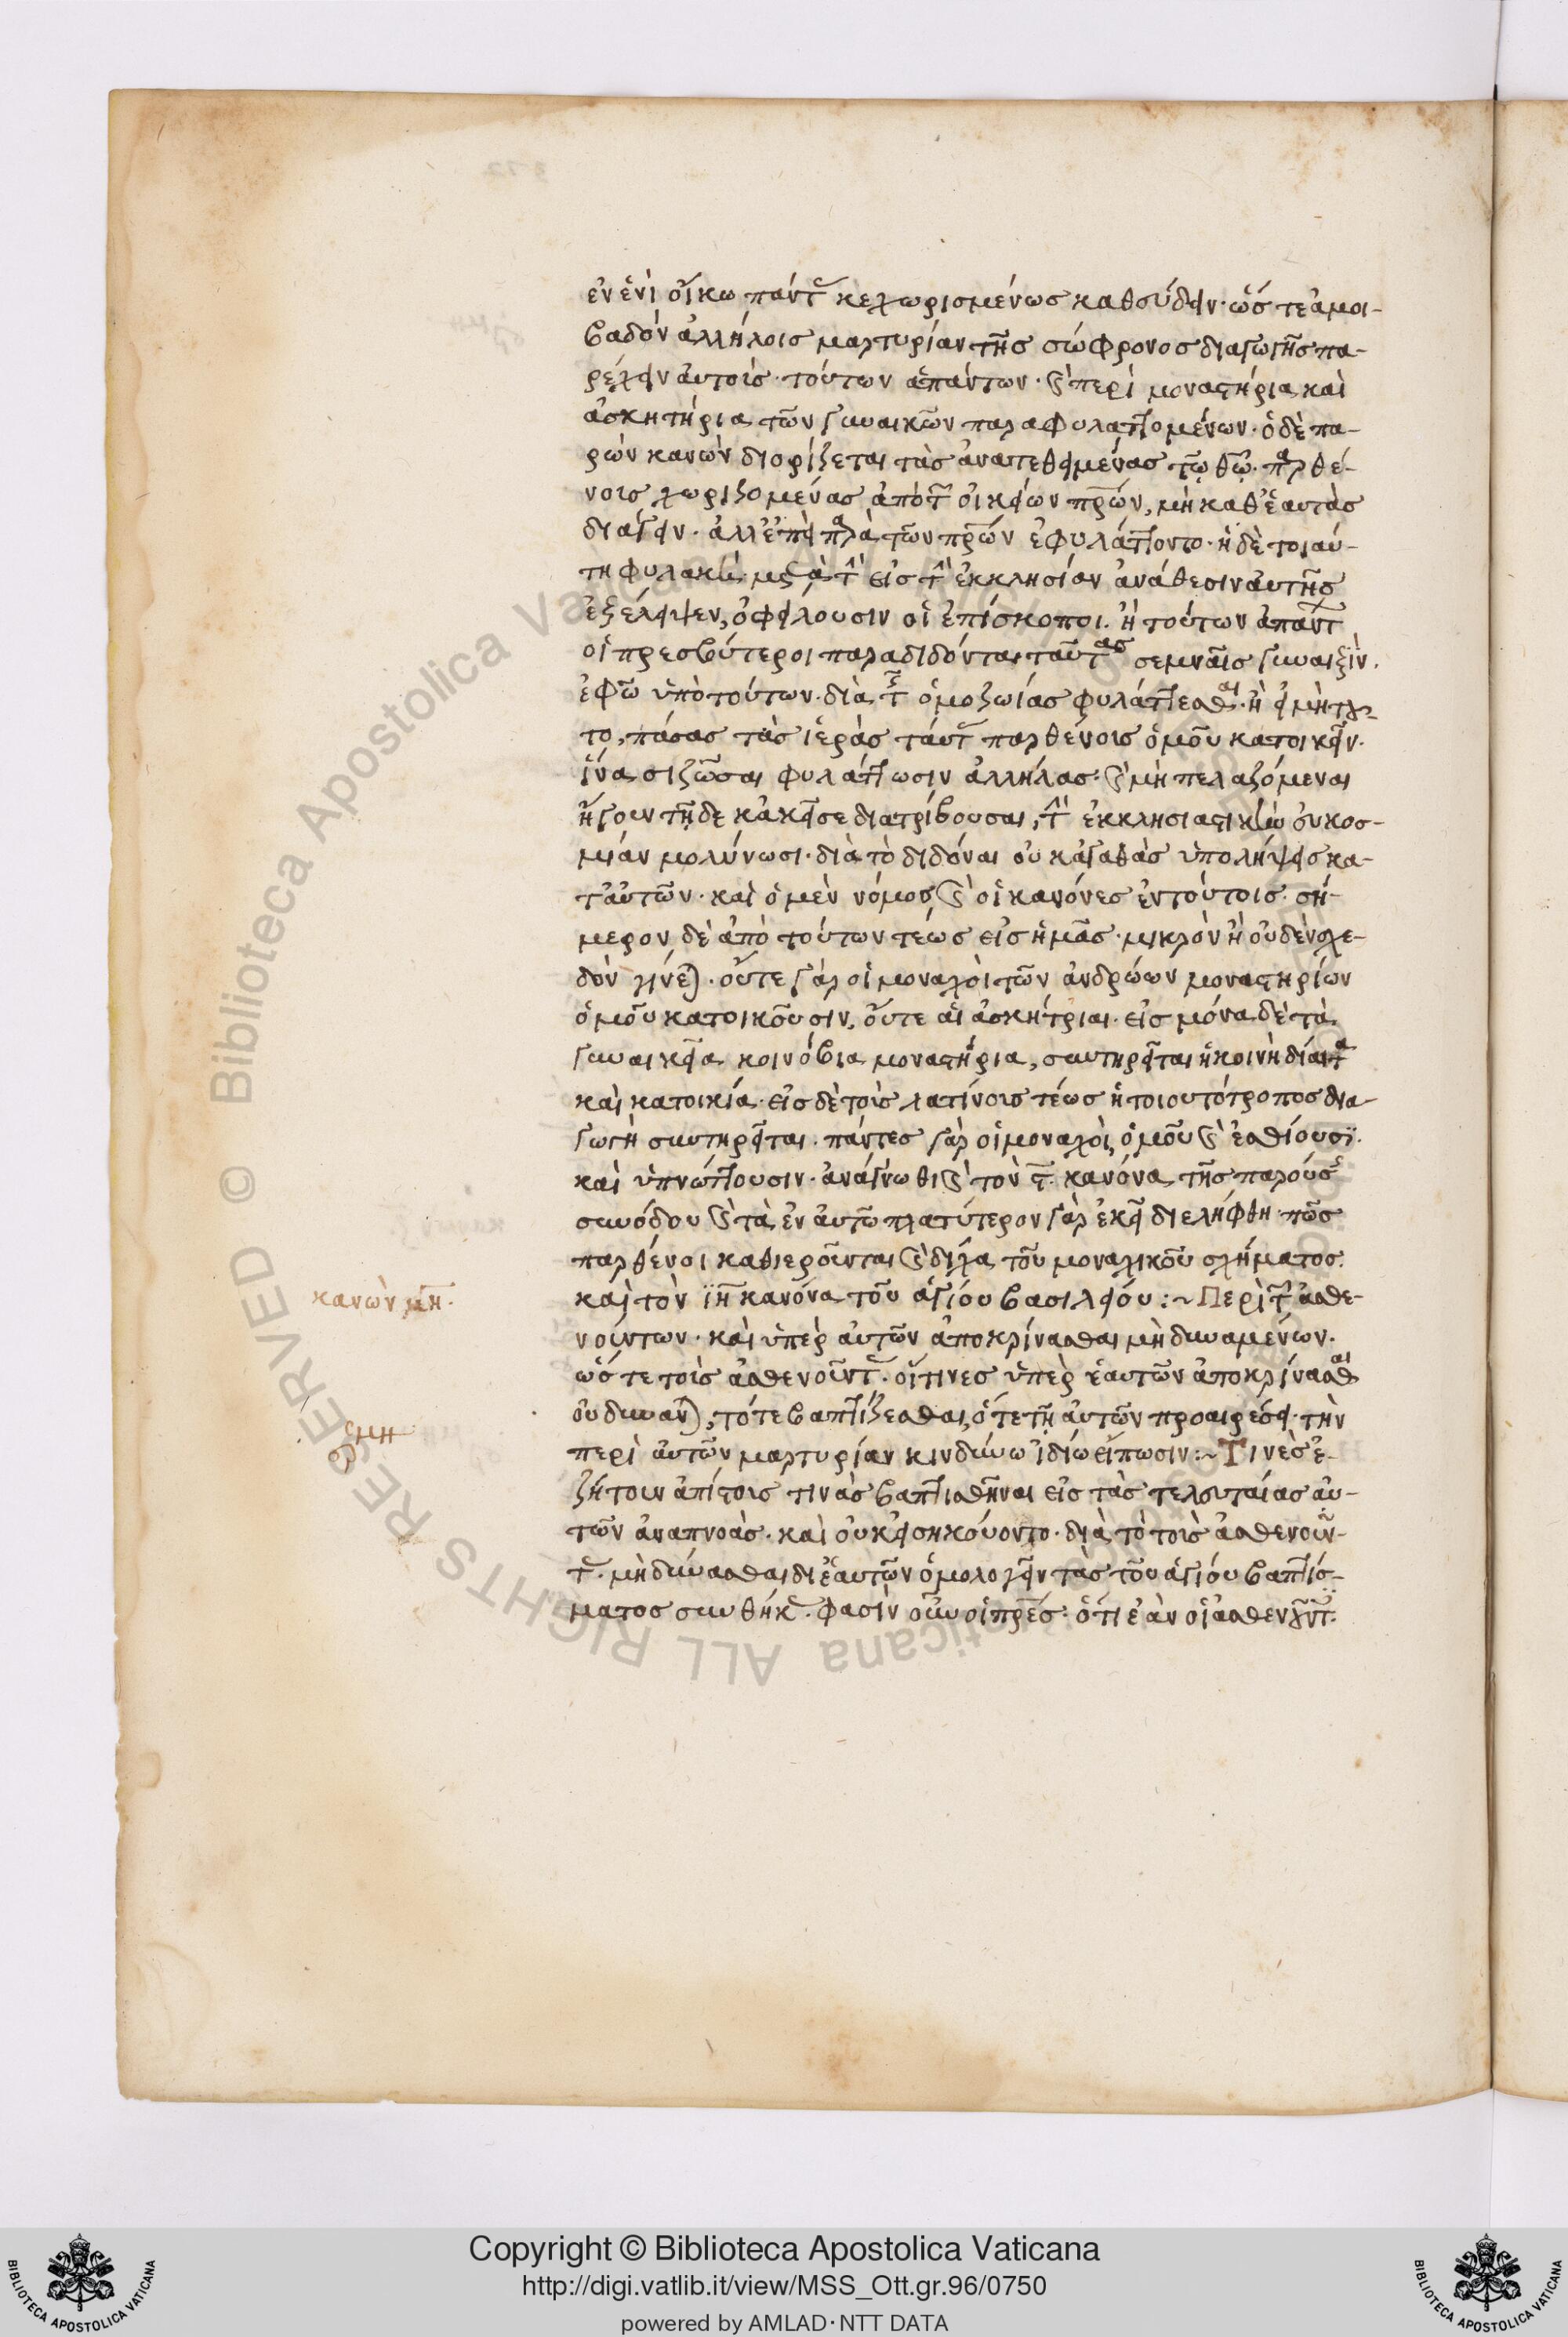 ἐν ἑνὶ οἴκω παντ̃ κεχωρισμένως καθεύδειν· ὥστε ἀμοι-
βαδὸν ἀλλήλοις μαρτυρίαν τῆς σώφρονος διαγωγῆς πα-
ρέχειν αὐτοῖς· τούτων ἁπάντων· καὶ περὶ μοναστήρια καὶ
ἀσκητήρια τῶν γυναικῶν παραφυλαττομένων· ὁ δὲ πα-
ρὼν κανὼν διορίζεται τὰς ἀνατεθειμένας τῷ θῷ· παρθέ-
νοις χωριζομένας ἀπὸ τ̃ οἰκείων πρῶν, μὴ καθ' ἑαυτὰς
διάγειν· ἀλλ' ἐπεὶ παρὰ τῶν πρῶν ἐφυλάττοντο· ἡ δὲ τοιαύ-
τη φυλακὴ μετὰ τ̃ εἰς τ̃ ἐκκλησίαν ἀνάθεσιν αὐτῆς
ἐξέλειψεν, ὀφείλουσιν οἱ ἐπίσκοποι. ἢ τούτων ἀπαντ̃
οἱ πρεσβύτεροι παραδιδόναι ταύτας σεμναῖς γυναιξὶν.
ἐφῶ ὑπὸ τούτων διὰ τ̃ ὁμοζωίας φυλάττεσθαι· ἢ εἰ μὴ τοῦ-
το, πάσας τὰς ἱερὰς ταύτ̃ παρθένοις ὁμοῦ κατοικεῖν·
ἵνα σιζῶσαι φυλάττωσιν ἀλλήλας· καὶ μὴ πελαζόμεναι
ἤγουν τῆδε κἀκεῖσε διατρίβουσαι, τ̃ ἐκκλησιαστικὴν εὐκοσ-
μίαν μολύνωσι· διὰ τὸ διδόναι οὐκ ἀγαθὰς ὑπολήψεις κα-
τ' αὐτῶν· καὶ ὁ μὲν νόμος καὶ οἱ κανόνες ἐν τούτοις· σή-
μερον δὲ ἀπὸ τούτων τέως εἰς ἡμᾶς· μικρὸν ἢ οὐδὲν σχε-
δὸν γίνεται. οὔτε γὰρ οἱ μοναχοὶ τῶν ἀνδρώων μοναστηρίων
ὁμοῦ κατοικοῦσιν, οὔτε αἱ ἀσκήτριαι. εἰς μόνα δὲ τὰ
γυναικεῖα κοινόβια μοναστήρια, συντηρεῖται ἡ κοινὴ δίαιτα
καὶ κατοικία. εἰς δὲ τοῖς λατίνοις τέως ἡ τοιουτότροπος δια-
γωγὴ συντηρεῖται. πάντες γὰρ οἱ μοναχοὶ, ὁμοῦ καὶ ἐσθίουσϊ.
καὶ ὑπνώττουσιν· ἀνάγνωθι καὶ τὸν ϛ̄. κανόνα τῆς παρούσ̃
συνόδου καὶ τὰ ἐν αὐτῶ πλατύτερον γὰρ ἐκεῖ διελήφθη πῶς
παρθένοι καθιεροῦνται καὶ δίχα τοῦ μοναχικοῦ σχήματος.
καὶ τὸν ιη̄ κανόνα τοῦ ἁγίου βασιλείου :~ Περὶ τ̃ ἀσθε-
νούντων· καὶ ὑπὲρ αὐτῶν ἀποκρίνασθαι μὴ δυναμένων.
ὥστε τοῖς ἀσθενοῦντ̃· οἵτινες ὑπὲρ ἑαυτῶν ἀποκρίνασθαι
οὐ δύνανται, τότε βαπτίζεσθαι, ὅτε τῆ αὐτῶν προαιρέσει· τὴν
περὶ αὐτῶν μαρτυρίαν κινδύνω ἰδίω εἴπωσιν :~ Τινὲς ἐ-
ζήτουν ἀπίστοις τινὰς βαπτισθῆναι εἰς τὰς τελευταίας αὐ-
τῶν ἀναπνοάς. καὶ οὐκ εἰσηκούοντο· διὰ τὸ τοῖς ἀσθενοῦν-
τ̃· μὴ δύνασθαι δι' ἑαυτῶν ὁμολογεῖν τὰς τοῦ ἁγίου βαπτίσ-
ματος συνθήκ̃· φασὶν οὖν οἱ πρε̃ς· ὅτι ἐὰν οἱ ἀσθενοῦντ̃·
κανὼν μη.
Copyright © Biblioteca Apostolica Vaticana
http://digi.vatlib.it/view/MSS_Ott.gr.96/0750
powered by AMLAD·NTT DATA
BIBLIOTECA APOSTOLICA VATICANA
BIBLIOTECA APOSTOLICA VATICANA
© Biblioteca Apostolica Vaticana ALL RIGHTS RESERVED